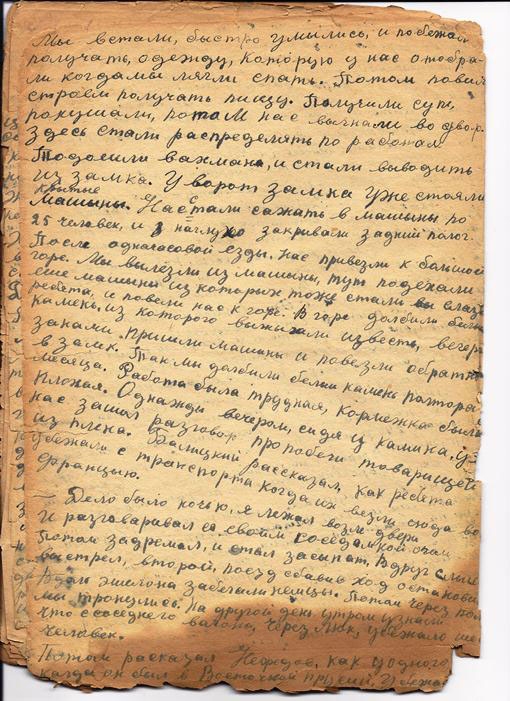 Мы встали, быстро умылись, и побежали
получать, одежду, которую у нас отобра-
ли когда мы лягли спать. Потом повели
строем получать пищу. Получили суп,
покушали, потом нас выгнали во двор.
Здесь стали распределять по работам
Подошли вахмана, и стали выводить
из замка. У ворот замка уже стояли
крытые
машыны. Нас стали сажать в машыны по
25 человек, и наглухо закривали задний полог.
После одначасовой езды. нас привезли к большой
горе. Мы вылезли из машыны, тут подехали
еще машыны из которых тоже стали вылазь
ребята, и повели нас к горе. В горе долбили белый
камень, из которого выжыгали известь, вечером
за нами. пришли машины и повезли обратно
в замк. Так мы долбили белый камень полтора
месяца. Работа была трудная, кормежка была
плохая. Однажди вечером, сидя у камина, у
нас зашол разговор про побеги товарищей
из плена. Балицкий рассказал, как ребята
убежали с транспорта когда их везли сюда во
Францыю.
— Дело было ночью, я лежал возле двери
и разговаривал со своим соседом
Потом задремал, и стал засыпат, Вдруг слышу
выстрел, второй, поезд сбавив ход остановил
Вдоль эшелона забегали немцы. Потом через пол
мы тронулись. На другой день утром узнали
что с соседнего вагона, через люк, убежало
человек.
Потом расказал Нефедов, как у одного
когда он был в Восточной Прусии, убежа